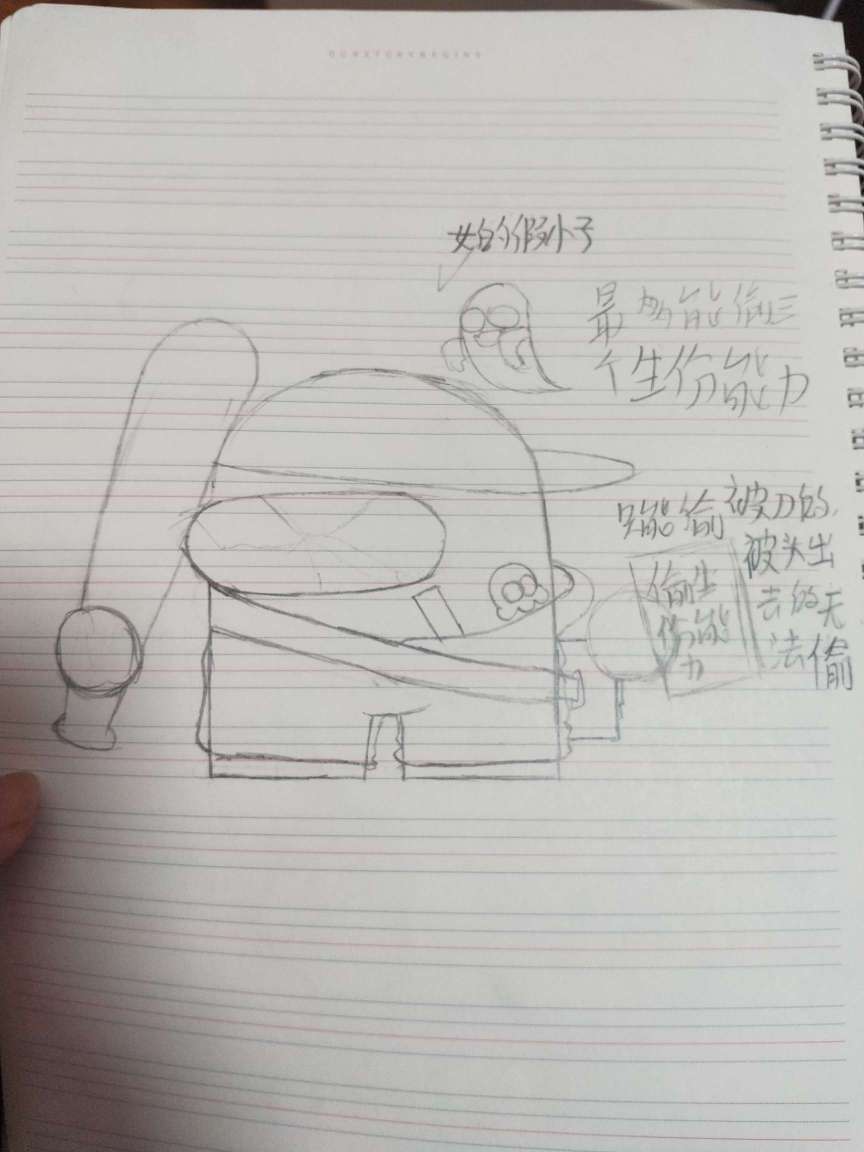 女的假小子
最多能偷三
个生份能力
只能偷被刀的,
被头出
去的无
法偷
偷生
份能
力